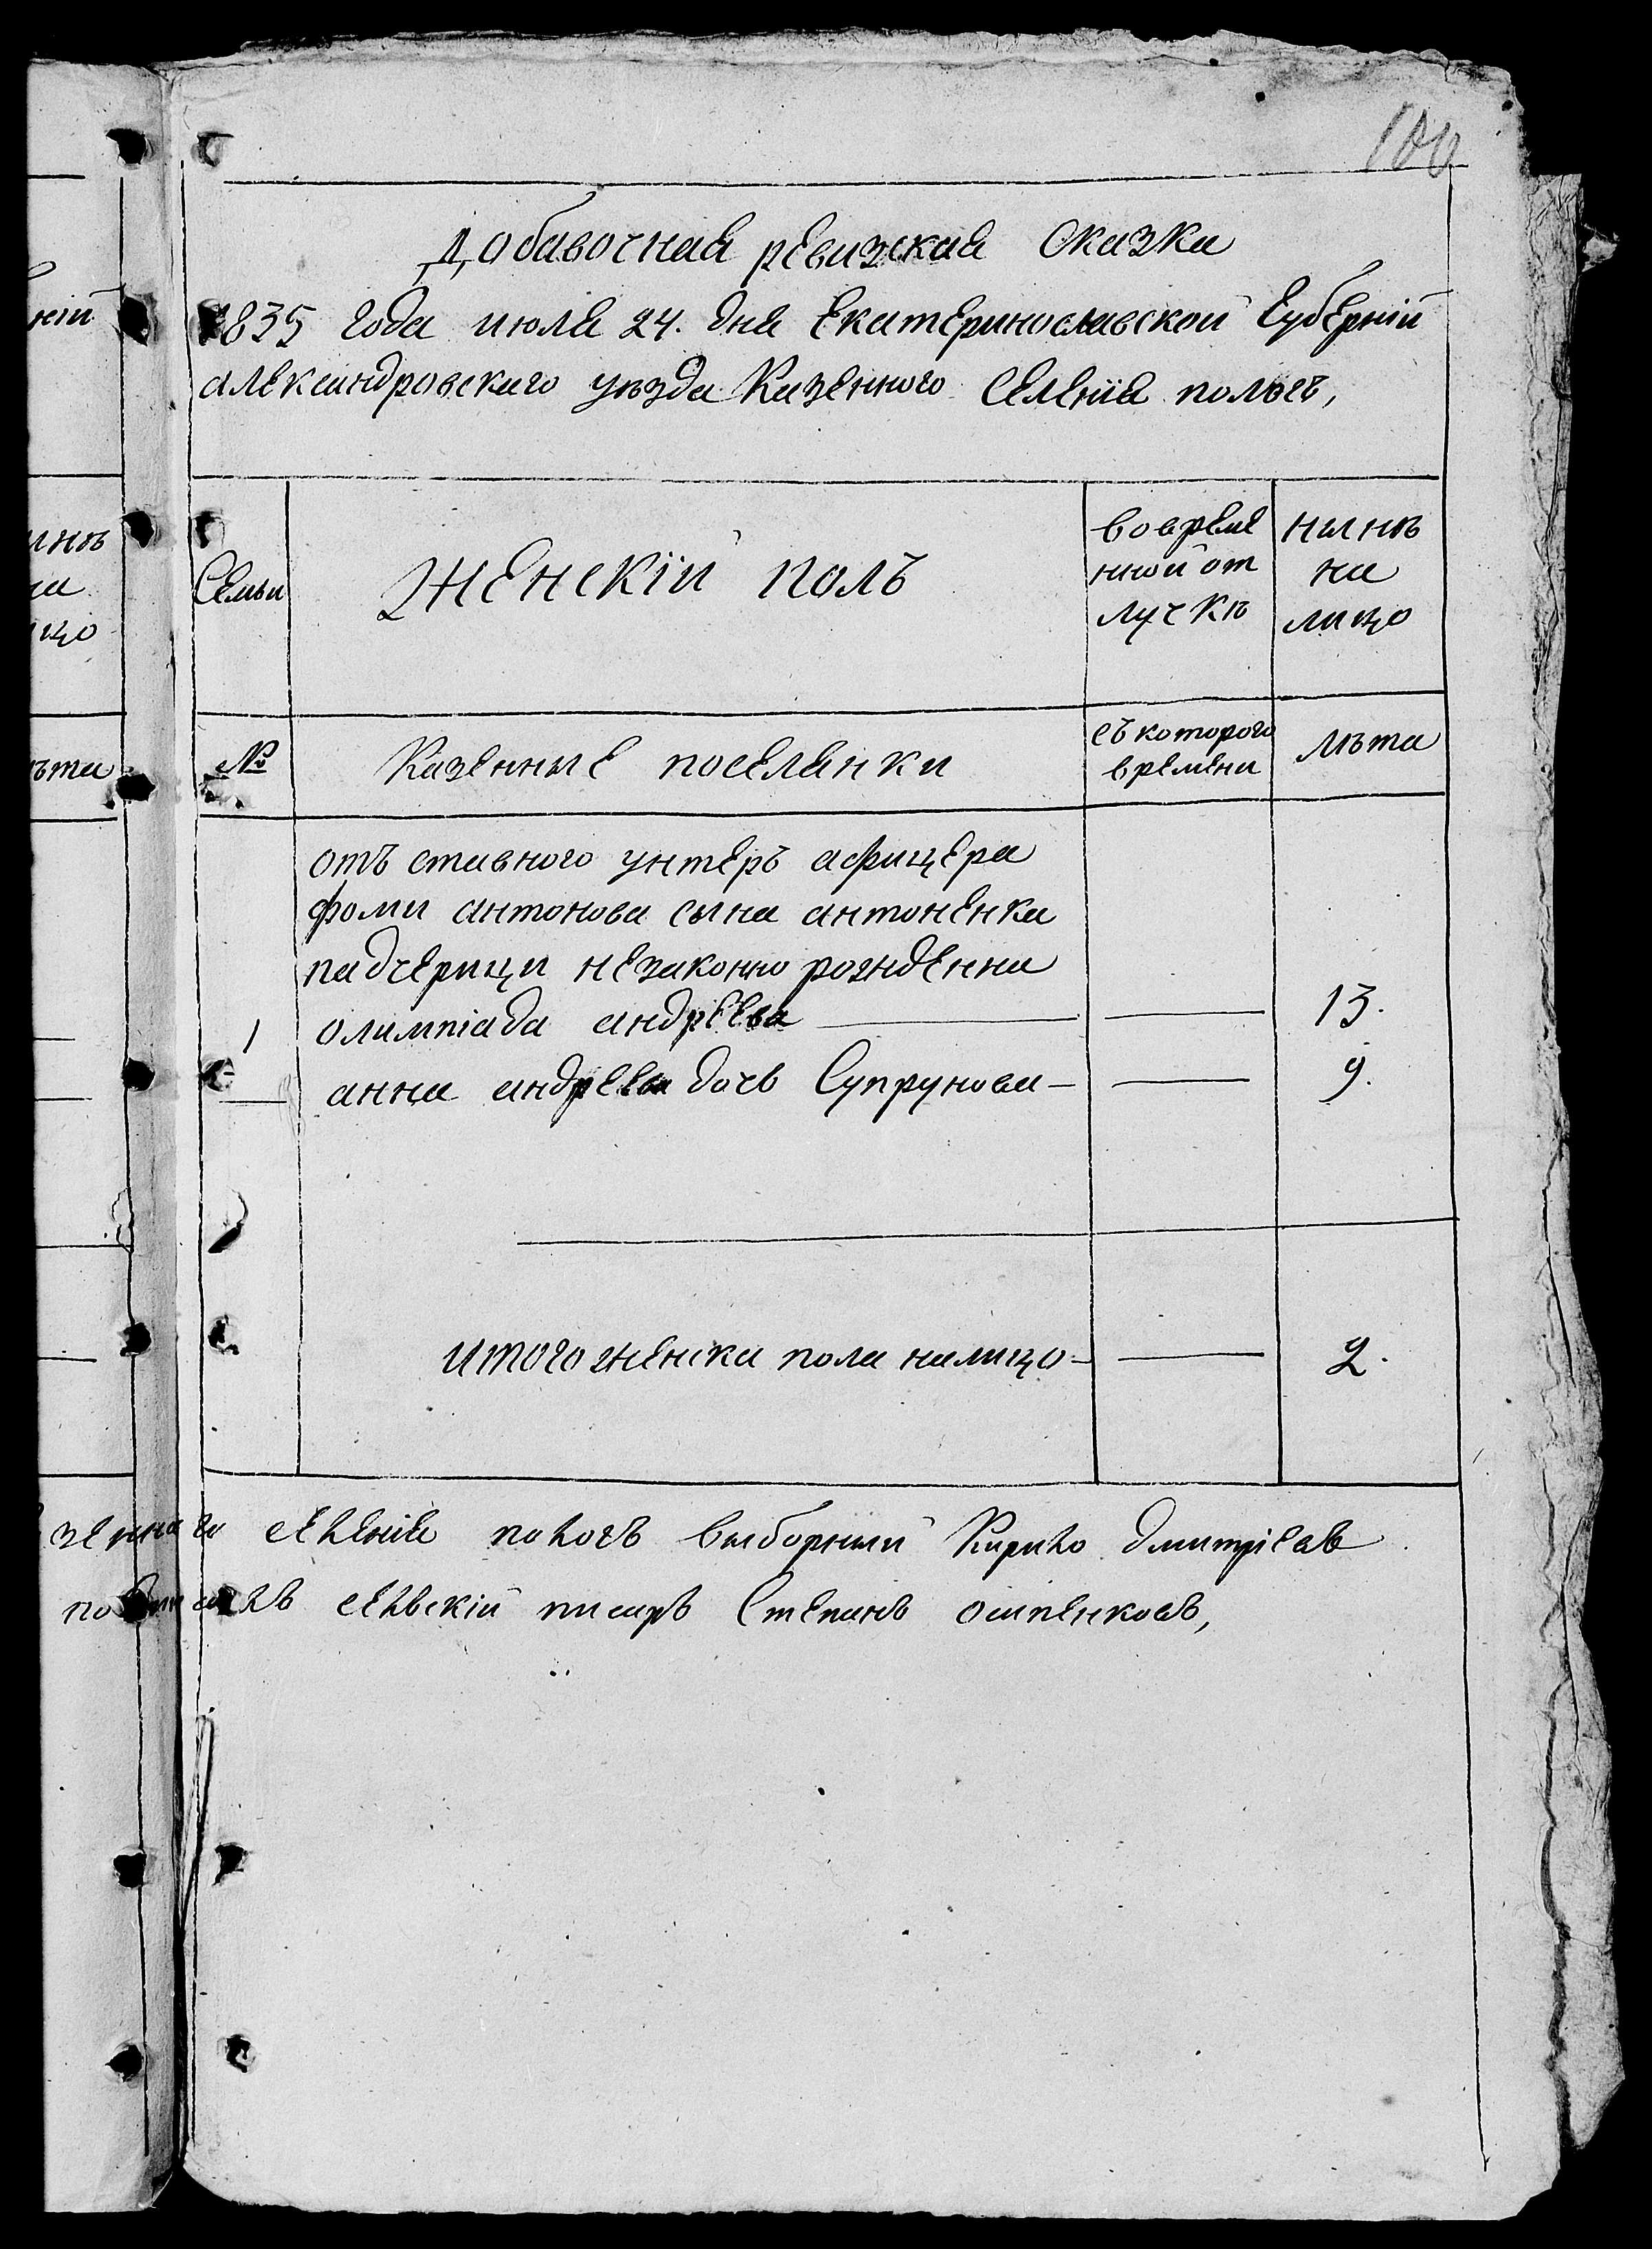 100
Добавочная ревизская Сказка
1835 года июля 24. дня Екатеринославской Губерній
александровского уѣзда Казенного Селенія пологъ,
Семьи
Женскій полъ
вовреме
нной от
лучкѣ
нынѣ
на
лицо
№
Казенные поселянки
съ которого
времени
лѣта
отъ ставного унтеръ афицера
фоми антонова сына антоненка
падчерици незаконно рожденна
1 олимпіада андреева — — 13.
— анна андреева дочь Супрунова — — 9.
итого женска пола налицо — — 2.
зенна го селенія пологъ выборный Кирило дмитріевъ
подписалъ селскій писарь Степанъ осипенковъ,
ній
ынѣ
на
ицо
ѣта